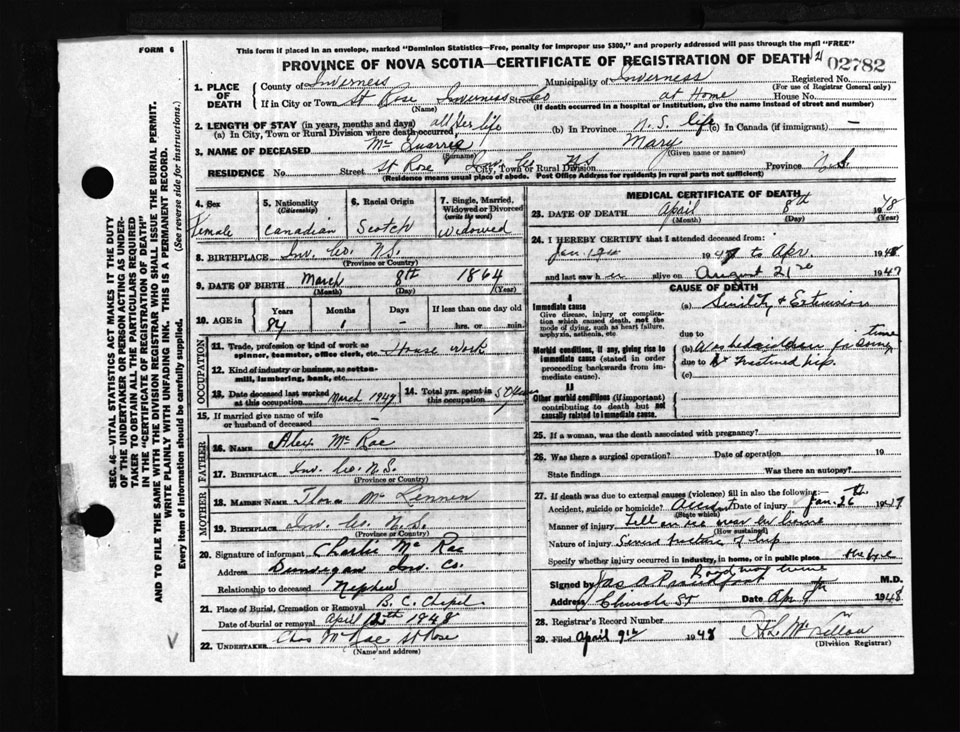 FORM 6
This form if placed in an envelope, marked "Dominion Statistics—Free, penalty for improper use $300," and properly addressed will pass through the mail "FREE"
PROVINCE OF NOVA SCOTIA—CERTIFICATE OF REGISTRATION OF DEATH
02782
1. PLACE OF DEATH
County of Inverness Municipality of Inverness Registered No.
(For use of Registrar General only)
If in City or Town St Rose Inverness Street Co at Home House No.
(Name) (If death occurred in a hospital or institution, give the name instead of street and number)
2. LENGTH OF STAY (in years, months and days)
(a) In City, Town or Rural Division where death occurred, all her life (b) In Province N.S. life (c) In Canada (if immigrant) —
3. NAME OF DECEASED Mc Quarrie Mary
(Surname) (Given name or names)
RESIDENCE No. Street St Rose Inv. Co NS City, Town or Rural Division Province N.S.
(Residence means usual place of abode. Post Office Address for residents in rural parts not sufficient)
4. Sex Female
5. Nationality (Citizenship) Canadian
6. Racial Origin Scotch
7. Single, Married, Widowed or Divorced (write the word) Widowed
8. BIRTHPLACE Inv. Co. N.S.
(Province or Country)
9. DATE OF BIRTH March 8th 1864
(Month) (Day) (Year)
10. AGE in Years Months Days If less than one day old
84 1 — hrs. or min.
OCCUPATION
11. Trade, profession or kind of work as spinner, teamster, office clerk, etc. House work
12. Kind of industry or business, as cotton-mill, lumbering, bank, etc.
13. Date deceased last worked at this occupation March 1947
14. Total yrs. spent in this occupation 50 years
15. If married give name of wife or husband of deceased
FATHER
16. Name Alex Mc Rae
17. BIRTHPLACE Inv. Co. N.S.
(Province or Country)
MOTHER
18. MAIDEN NAME Flora Mc Lennen
19. BIRTHPLACE Inv. Co N.S.
(Province or Country)
20. Signature of informant Charlie Mc Rae
Address Dunvegan Inv. Co.
Relationship to deceased Nephew
21. Place of Burial, Cremation or Removal B.C. Chapel
Date of burial or removal April 12th 1948
22. UNDERTAKER Chas McRae St Rose
(Name and address)
MEDICAL CERTIFICATE OF DEATH
23. DATE OF DEATH April 8th 1948
(Month) (Day) (Year)
24. I HEREBY CERTIFY that I attended deceased from:
Jan. 194 to Apr. 1948
and last saw her alive on August 21 1947
CAUSE OF DEATH
I
Immediate cause
Give disease, injury or complication which caused death, not the mode of dying, such as heart failure, asphyxia, asthenia, etc.
(a) Senility &
due to
Morbid conditions, if any, giving rise to immediate cause (stated in order proceeding backwards from immediate cause).
(b) Was bedridden for some time
due to fractured hip.
(c)
II
Other morbid conditions (if important) contributing to death but not causally related to immediate cause.
25. If a woman, was the death associated with pregnancy?
26. Was there a surgical operation? Date of operation 19
State findings Was there an autopsy?
27. If death was due to external causes (violence) fill in also the following:—
Accident, suicide or homicide? Accident Date of injury Jan. 26th 1947
(State which)
Manner of injury Fell on ice near by home
(How sustained)
Nature of injury Severe fracture of hip
Specify whether injury occurred in industry, in home, or in public place
Signed by Jas A Proudfoot M.D.
Address Church St Date Apr 9th 1948
28. Registrar's Record Number
29. Filed April 9th 1948
(Division Registrar)
SEC. 46—VITAL STATISTICS ACT MAKES IT THE DUTY OF THE UNDERTAKER OR PERSON ACTING AS UNDERTAKER TO OBTAIN ALL THE PARTICULARS REQUIRED IN THE "CERTIFICATE OF REGISTRATION OF DEATH" AND TO FILE THE SAME WITH THE DIVISION REGISTRAR WHO SHALL ISSUE THE BURIAL PERMIT.
WRITE PLAINLY WITH UNFADING INK. THIS IS A PERMANENT RECORD.
Every item of information should be carefully supplied. (See reverse side for instructions.)